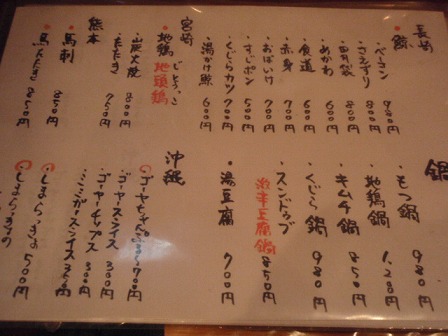 長崎
鯨
・ベーコン 980円
・さえずり 880円
・田丹袋 880円
・めかわ 600円
・食道 600円
・赤身 700円
・おばいけ 700円
・すじポン 500円
・くじらカツ 700円
・湯かけ鯨 600円
宮崎
地鶏 じとっこ
地頭鶏
・炭火焼 800円
・たたき 750円
熊本
・馬刺 850円
鍋
・もつ鍋 980円
・地鶏鍋 1,280円
・キムチ鍋 850円
・くじら鍋 980円
・スンドゥブ
激辛豆腐鍋 850円
・湯豆腐 700円
沖縄
・ゴーヤチャンプルー 700円
・ゴーヤースライス 300円
・ゴーヤチップス 300円
・ミミガースライス
・しまらっきょ 500円